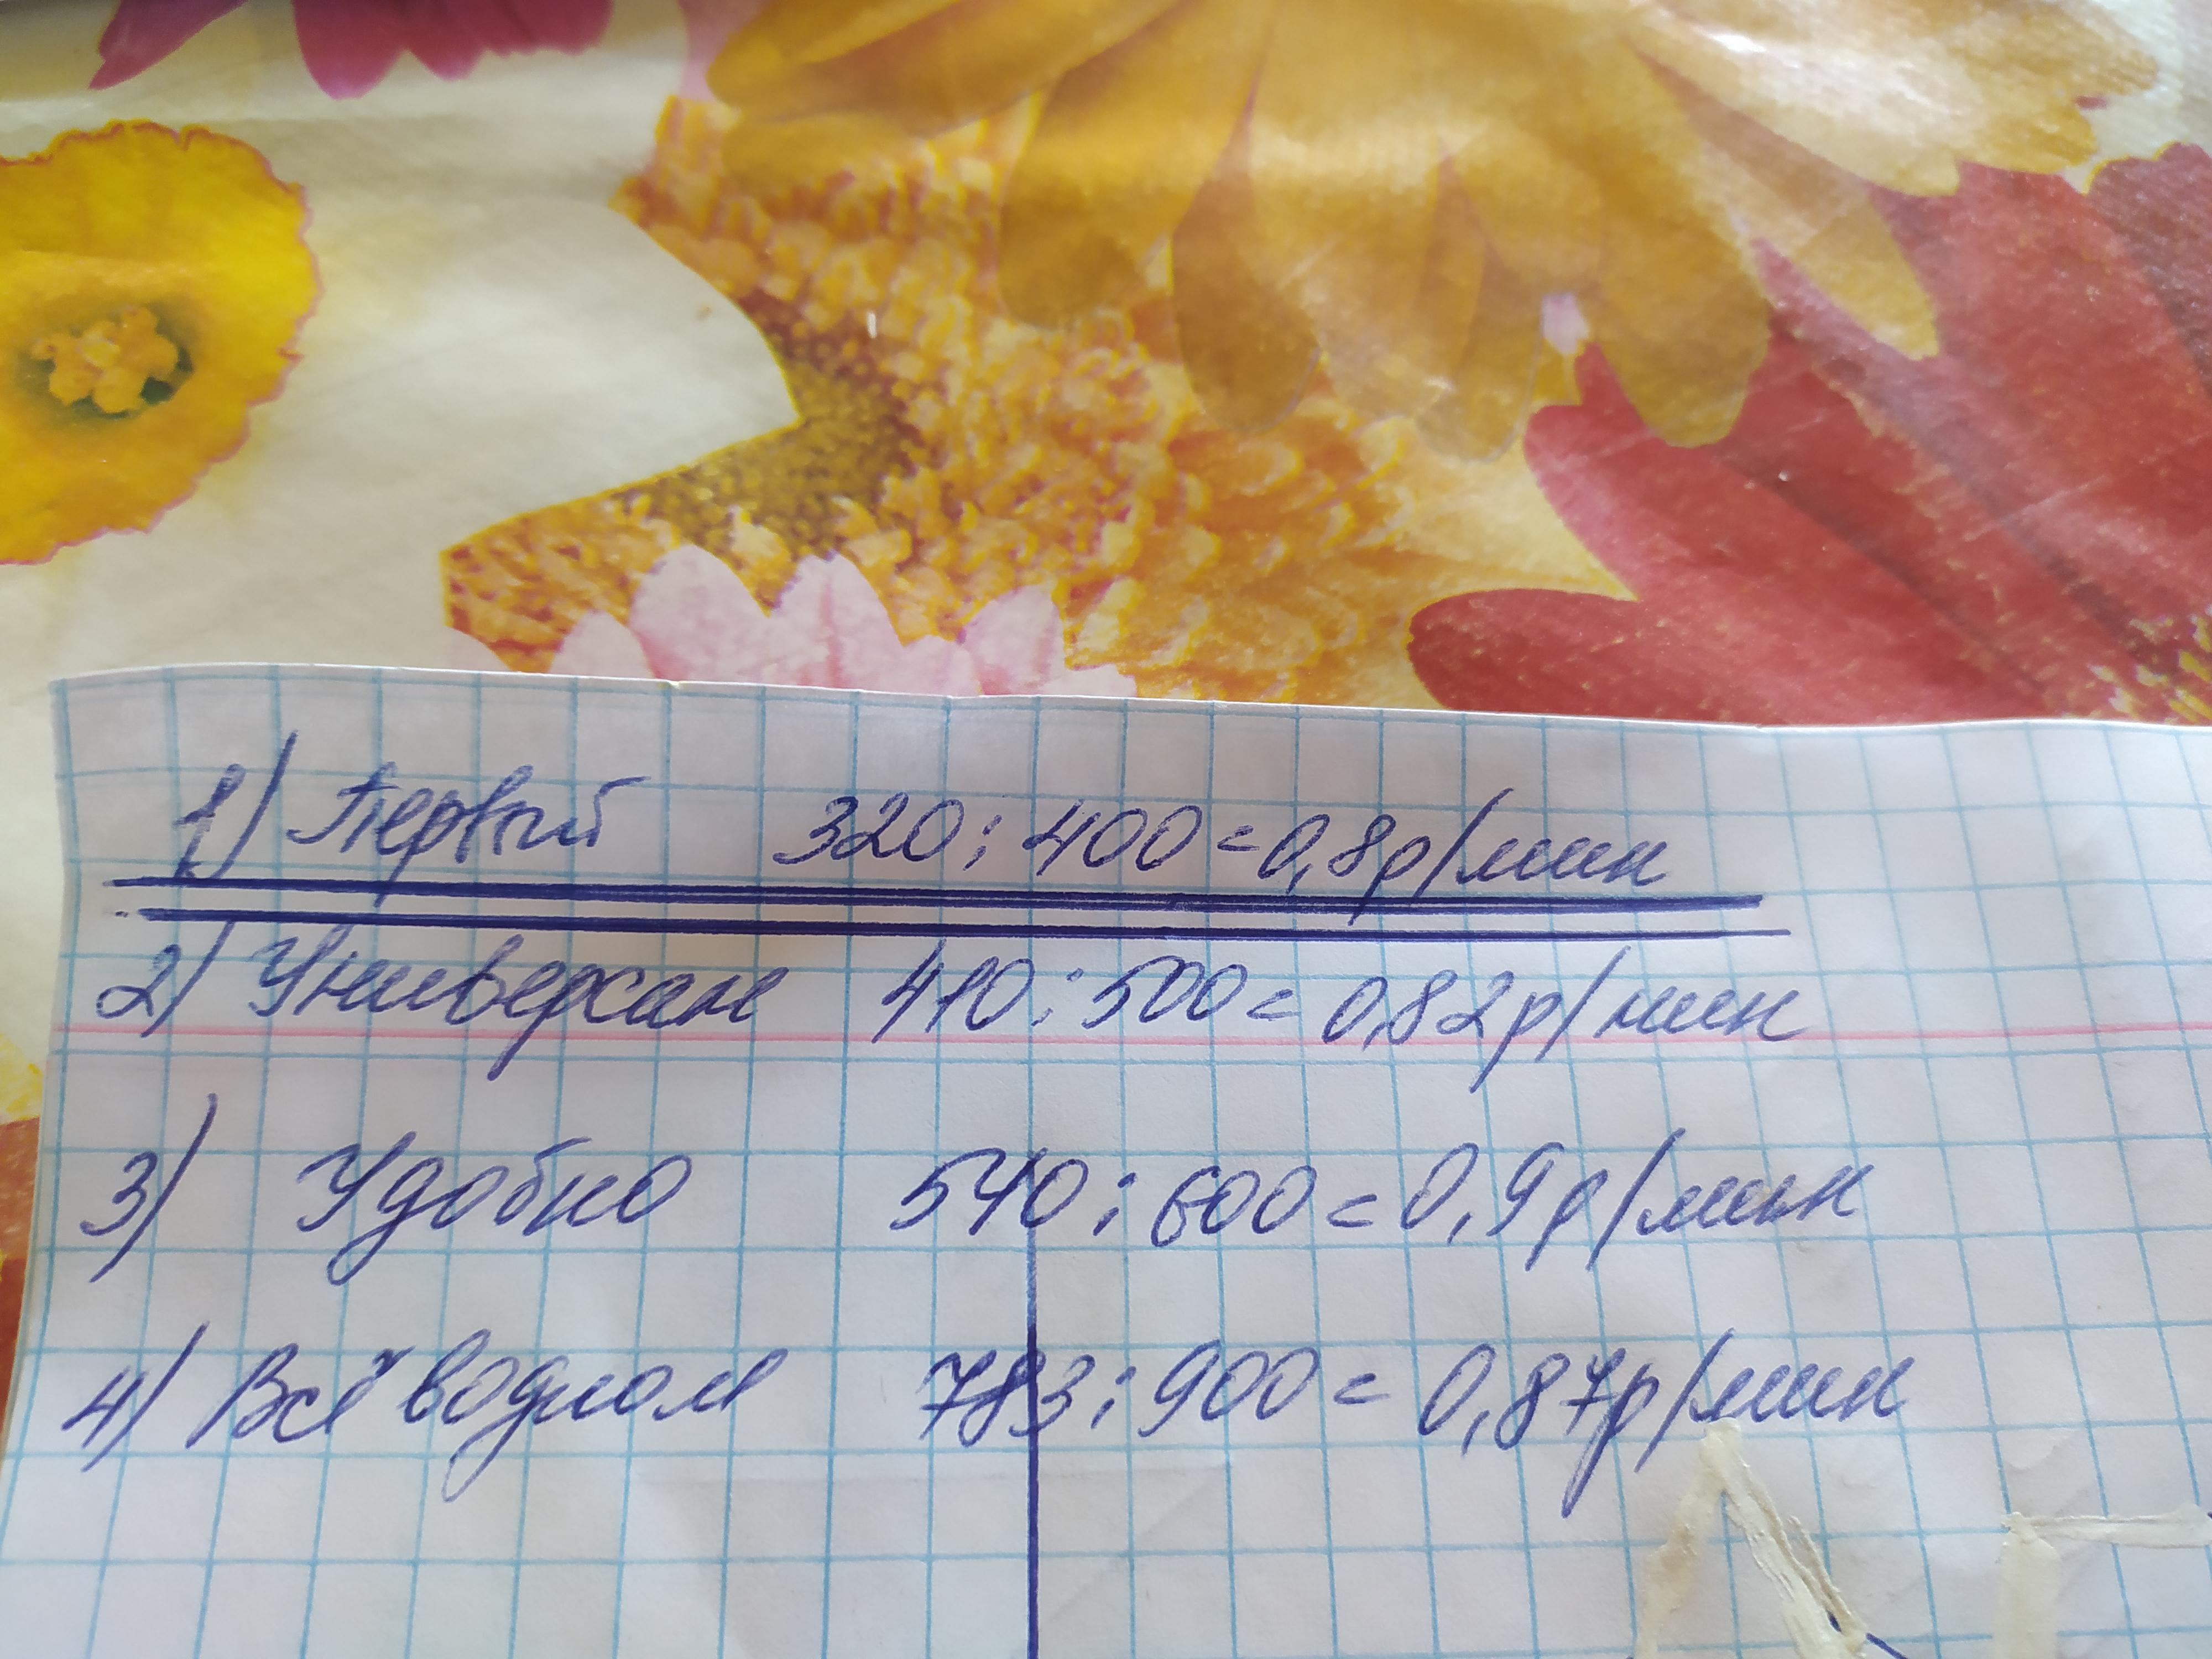 1) Первый 320 : 400 = 0,8р/мин
2) Универсам 410 : 500 = 0,82р/мин
3) Удобно 540 : 600 = 0,9р/мин
4) Всё водном 783 : 900 = 0,87р/мин